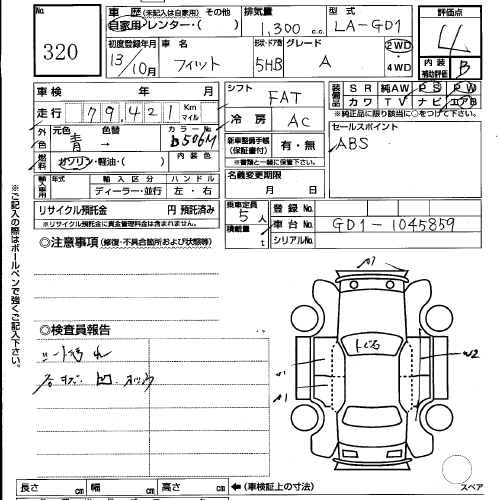 No. 320
車歴 (未記入は自家用) その他
自家用・レンター・( )
排気量 1,300 c.c.
型式 LA-GD1
評価点 4
内装 補助評価 B
初度登録年月 13/10月
車名 フィット
形状・ドア数 5HB
グレード A
2WD・4WD
車検 年 月
シフト FAT
装備品 SR 純AW PS PW
カワ TV ナビ エアB
※純正品に限り該当に○をつけて下さい。
走行 79,421 Km マイル
冷房 AC
セールスポイント
ABS
外色 元色 青 → 色替
カラー No. B506M
燃料 ガソリン・軽油・( )
内装色
新車整備手帳 (保証書付) 有・無
※書類と一緒に保管下さい。
輸入車用 年式 輸入区分 ハンドル
ディーラー・並行 左・右
名義変更期限
月 日
リサイクル預託金 円 預託済み
※リサイクル預託金に資金管理料金は含まれません。
乗車定員 5人
積載量 t
登録No.
車台No. GD1-1045859
シリアルNo.
◎注意事項 (修復・不具合箇所および状態等)
※ご記入の際はボールペンで強くご記入下さい。
◎検査員報告
シート汚れ
A1
W2
A1
A1
長さ cm 幅 cm 高さ cm ◀(車検証上の寸法)
スペア